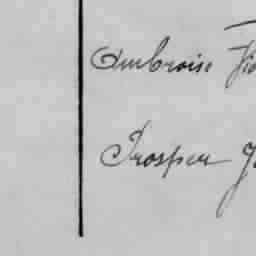 Ambroise
Prosper